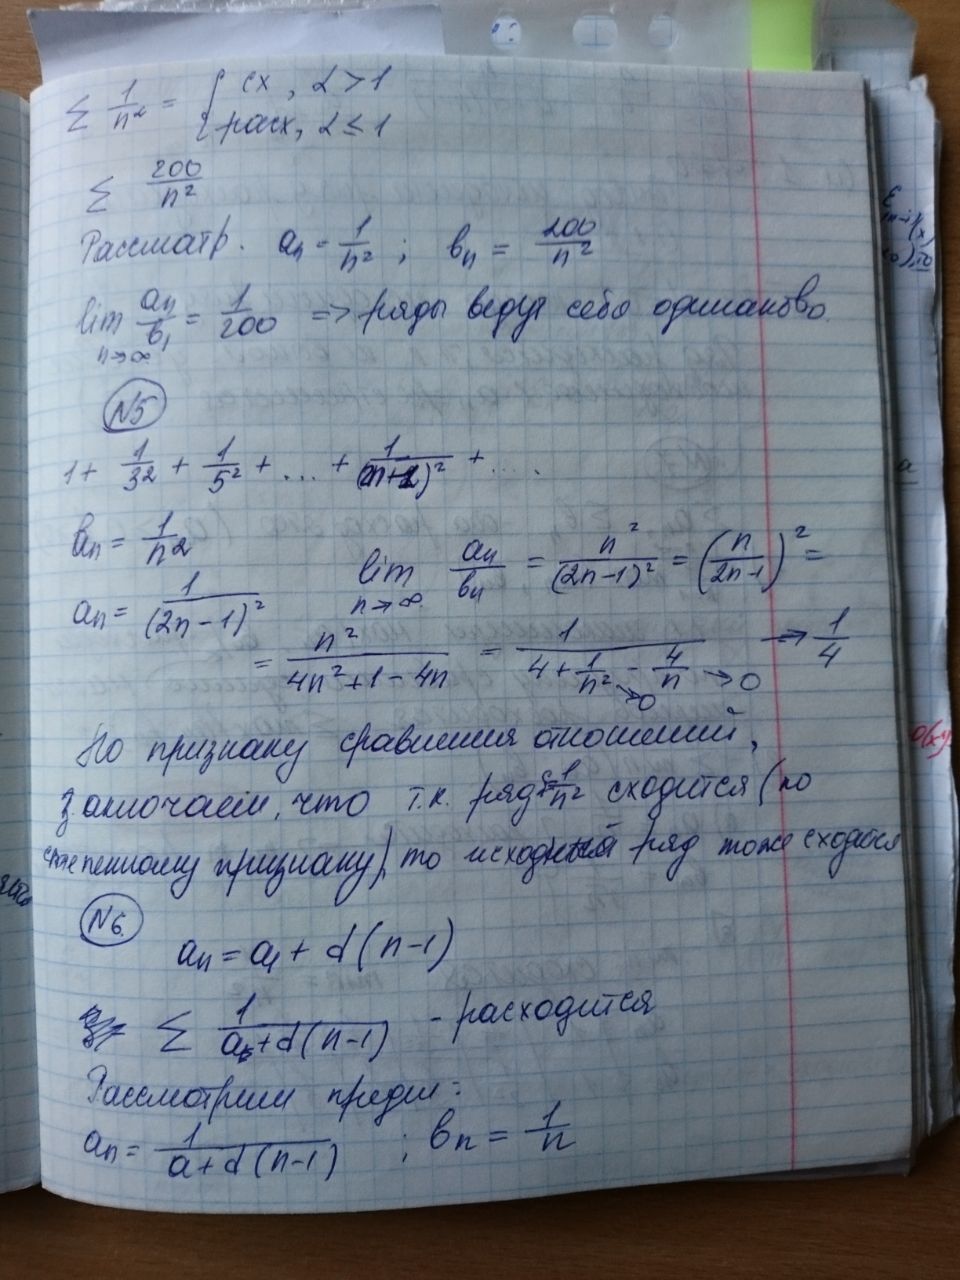 ∑ 1/n^α = { сх, α > 1
{ расх, α ≤ 1
∑ 200/n²
Рассматр. aₙ = 1/n² ; bₙ = 200/n²
lim n→∞ aₙ/b₁ = 1/200 => ряды ведут себя одинаково.
N5
1 + 1/3² + 1/5² + ... + 1/(2n+1)² + ...
bₙ = 1/n²
aₙ = 1/(2n-1)² lim n→∞ aₙ/bₙ = n²/(2n-1)² = (n/(2n-1))² =
= n²/(4n²+1-4n) = 1/(4 + 1/n² →0 - 4/n →0) => 1/4
По признаку сравнения отношений,
заключаем, что т.к. ряд ∑ 1/n² сходится (по
степенному признаку), то исходный ряд тоже сходится
N6.
aₙ = a₁ + d(n-1)
∑ 1/(a₁+d(n-1)) - расходится
Рассмотрим предел:
aₙ = 1/(a+d(n-1)) ; bₙ = 1/n